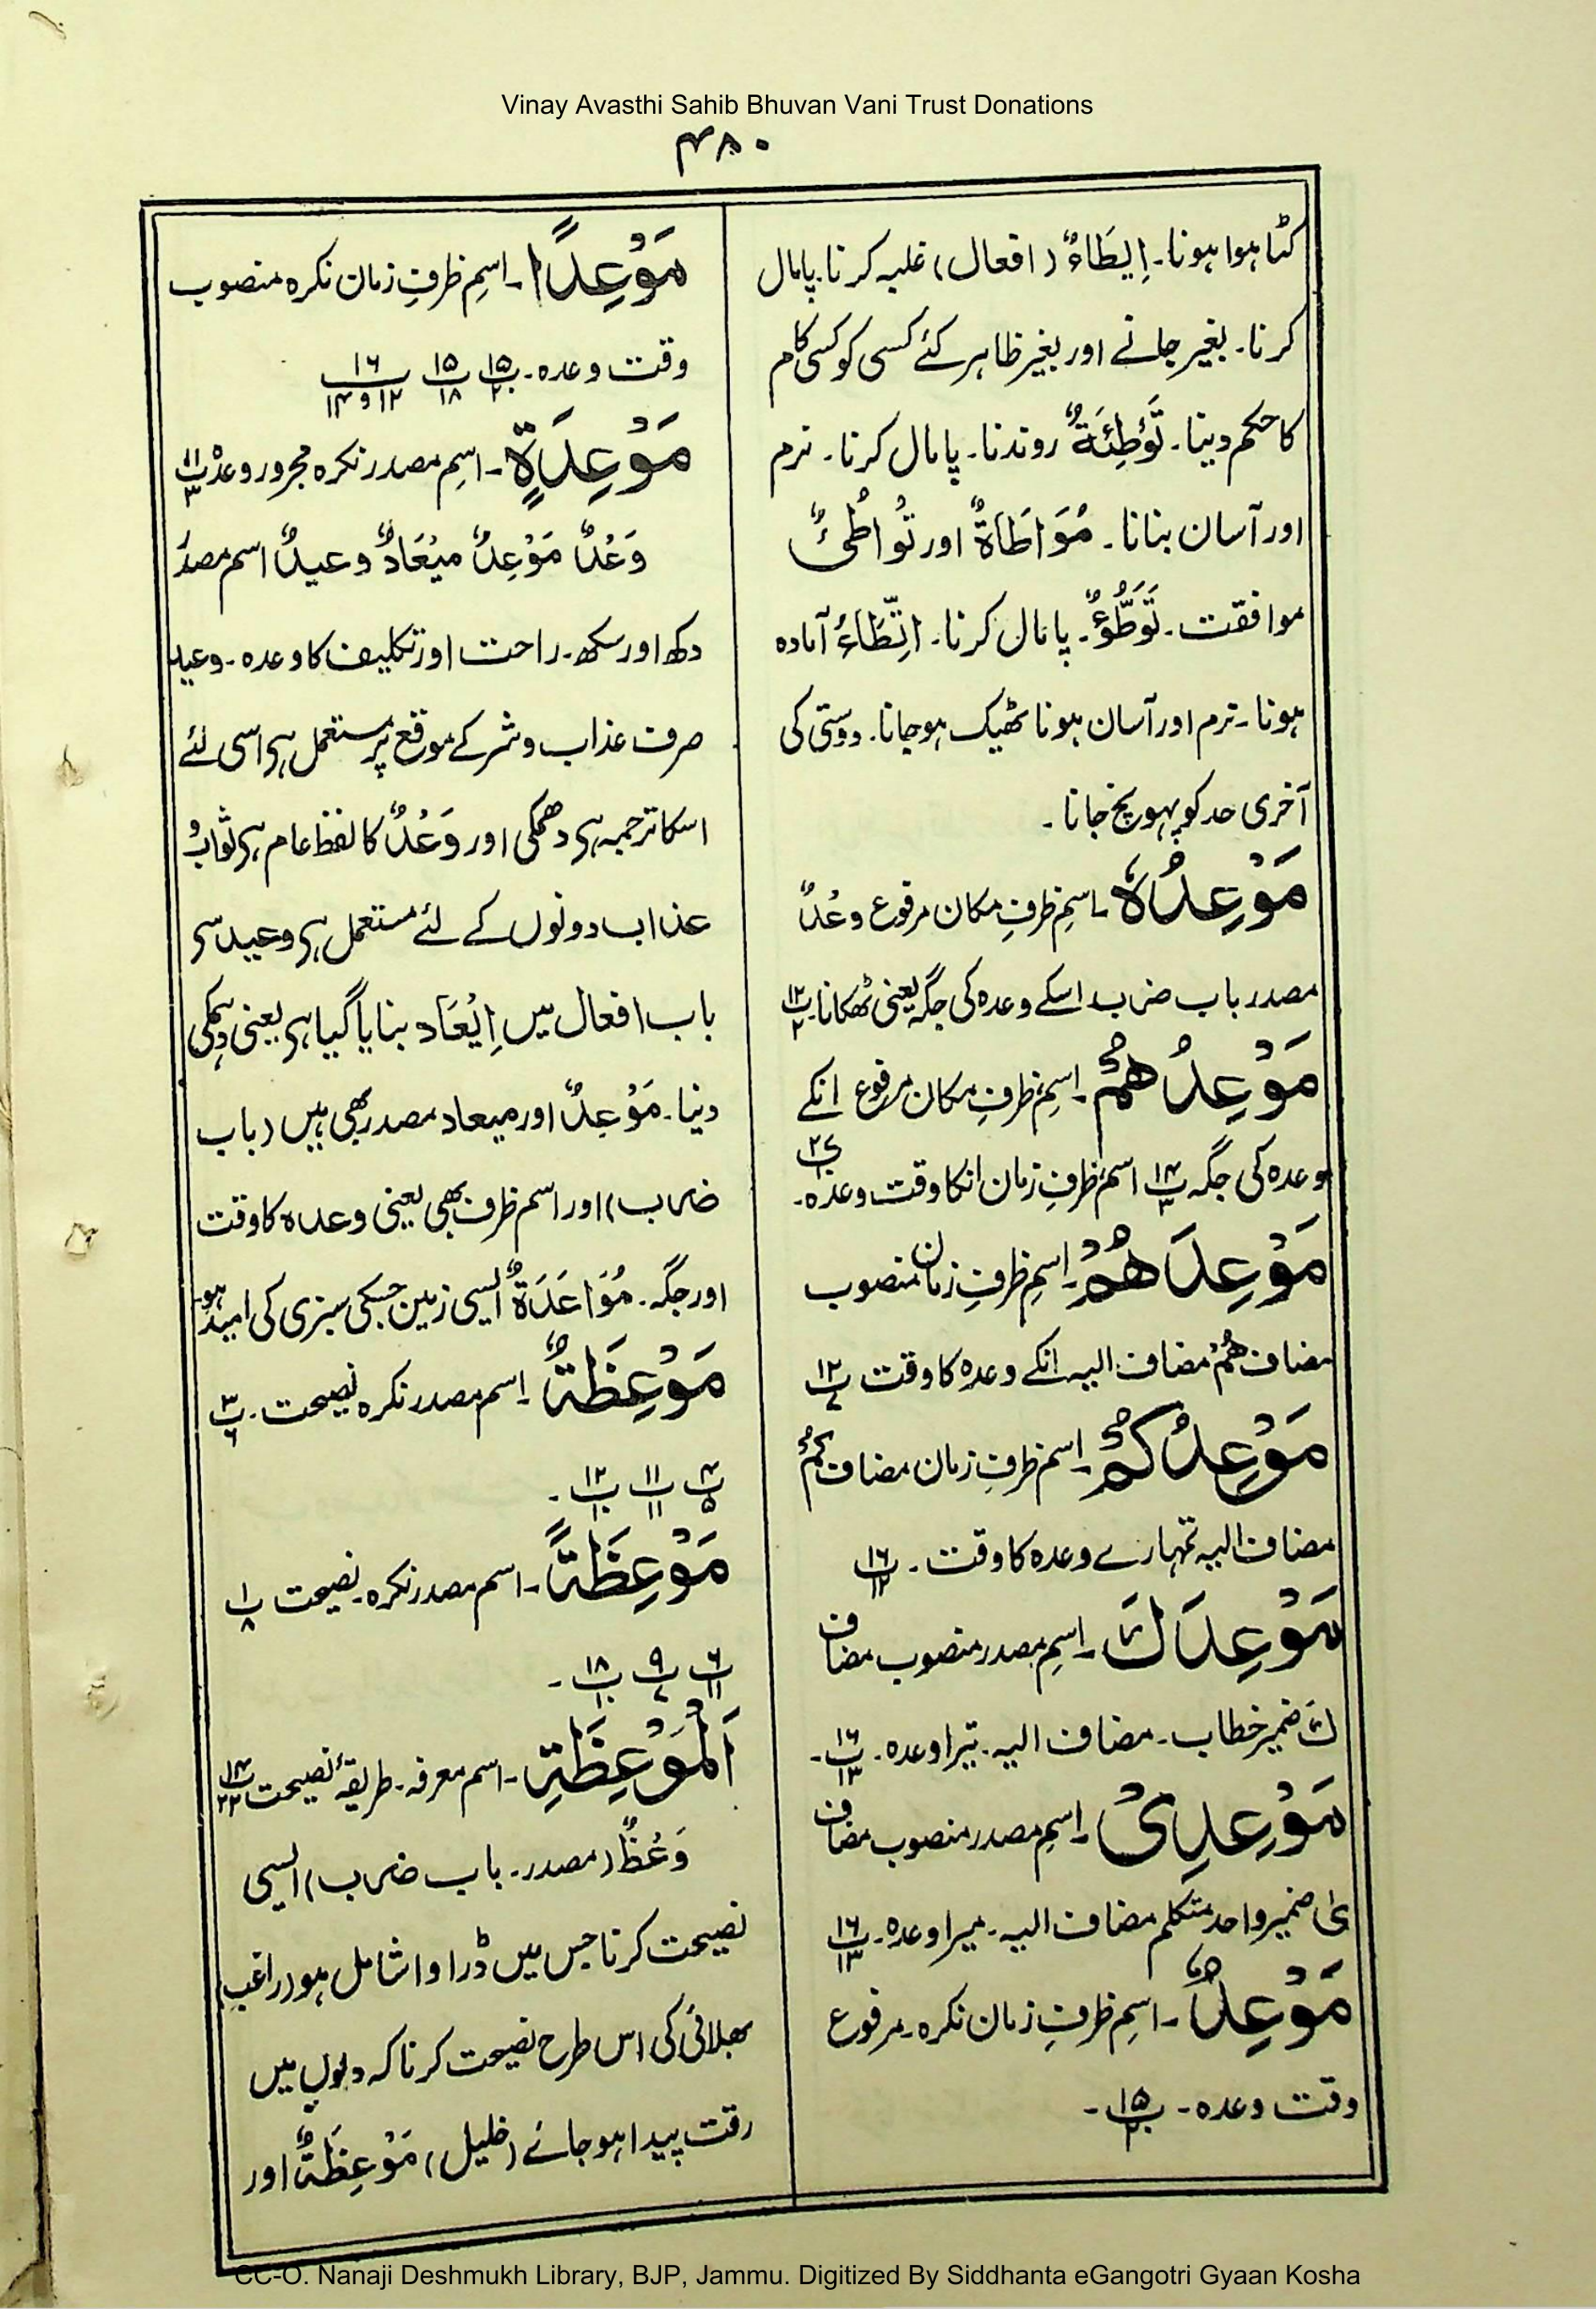 Vinay Avasthi Sahib Bhuvan Vani Trust Donations
۴۸۰
کٹا ہوا ہونا۔ اِیطَاءٌ (افعال) غلبہ کرنا۔ پامال
کرنا۔ بغیر جانے اور بغیر ظاہر کئے کسی کو کسی کام
کا حکم دینا۔ تَوْطِئَةٌ روندنا۔ پامال کرنا۔ نرم
اور آسان بنانا۔ مُوَاطَاةٌ اور تُواطُئٌ
موافقت۔ تَوَطُّؤٌ۔ پامال کرنا۔ اتِّطَاءٌ آمادہ
ہونا۔ نرم اور آسان ہونا ٹھیک ہوجانا۔ دوستی کی
آخری حد کو پہونچ جانا۔
مَوْعِدُہٗ۔ اسمِ ظرفِ مکان مرفوع وعْدٌ
مصدر باب ضرب اسکے وعدہ کی جگہ یعنی ٹھکانا۔ ۱۲ پ ۲
مَوْعِدُھُمْ۔ اسمِ ظرفِ مکان مرفوع انکے
وعدہ کی جگہ ۱۴ پ ۳ اسم ظرفِ زمان انکا وقت وعدہ۔ ۲۷ پ ۱۰
مَوْعِدَھُمْ۔ اسمِ ظرفِ زمان منصوب
مضاف ھُمْ مضاف الیہ انکے وعدہ کا وقت ۱۲ پ ۷
مَوْعِدُکُمْ۔ اسم ظرفِ زمان مضاف کُمْ
مضاف الیہ تمہارے وعدہ کا وقت۔ ۱۶ پ ۱۲
مَوْعِدَكَ۔ اسمِ مصدر منصوب مضاف
كَ ضمیر خطاب۔ مضاف الیہ۔ تیرا وعدہ۔ ۱۶ پ ۱۳۔
مَوْعِدِیْ۔ اسمِ مصدر منصوب مضاف
ی ضمیر واحد متکلم مضاف الیہ۔ میرا وعدہ۔ ۱۶ پ ۱۳
مَوْعِدٌ۔ اسمِ ظرفِ زمان نکرہ۔ مرفوع
وقت وعدہ۔ ۱۵ پ ۲۰۔
مَوْعِدًا۔ اسمِ ظرفِ زمان نکرہ منصوب
وقت وعدہ۔ ۱۵ پ ۲۰ ۱۵ پ ۱۸ ۱۶ پ ۱۲ و ۱۴
مَوْعِدَةٍ۔ اسمِ مصدر نکرہ مجرور وعدہ ۱۱ پ ۳
وَعْدٌ مَوْعِدٌ میْعَادٌ وعیدٌ اسم مصدر
دکھ اور سکھ۔ راحت اور تکلیف کا وعدہ۔ وعید
صرف عذاب وشر کے موقع پر مستعمل ہے اسی لئے
اسکا ترجمہ ہے دھمکی اور وَعْدٌ کا لفظ عام ہے ثواب و
عذاب دونوں کے لئے مستعمل ہے وعید سے
باب افعال میں اِیْعَاد بنایا گیا ہے یعنی دھمکی
دینا۔ مَوْعِدٌ اور میعاد مصدر بھی ہیں (باب
ضرب) اور اسم ظرف بھی یعنی وعدہ کا وقت
اور جگہ۔ مُوَاعَدَةٌ ایسی زمین جسکی سبزی کی امید ہو۔
مَوْعِظَةٌ۔ اسم مصدر نکرہ نصیحت۔ ۳ پ ۶
۴ پ ۵ ۱۱ پ ۱۱ ۱۲ پ ۱۰۔
مَوْعِظَةً۔ اسم مصدر نکرہ۔ نصیحت ۱ پ ۸
۶ پ ۱۱ ۹ پ ۷ ۱۸ پ ۱۰۔
اَلْمَوْعِظَةِ۔ اسم معرفہ۔ طریقۂ نصیحت ۱۴ پ ۲۲
وَعْظٌ (مصدر۔ باب ضرب) ایسی
نصیحت کرنا جس میں ڈراوا شامل ہو (راغب)
بھلائی کی اس طرح نصیحت کرنا کہ دلوں میں
رقت پیدا ہوجائے (خلیل) مَوْعِظَةٌ اور
CC-O. Nanaji Deshmukh Library, BJP, Jammu. Digitized By Siddhanta eGangotri Gyaan Kosha